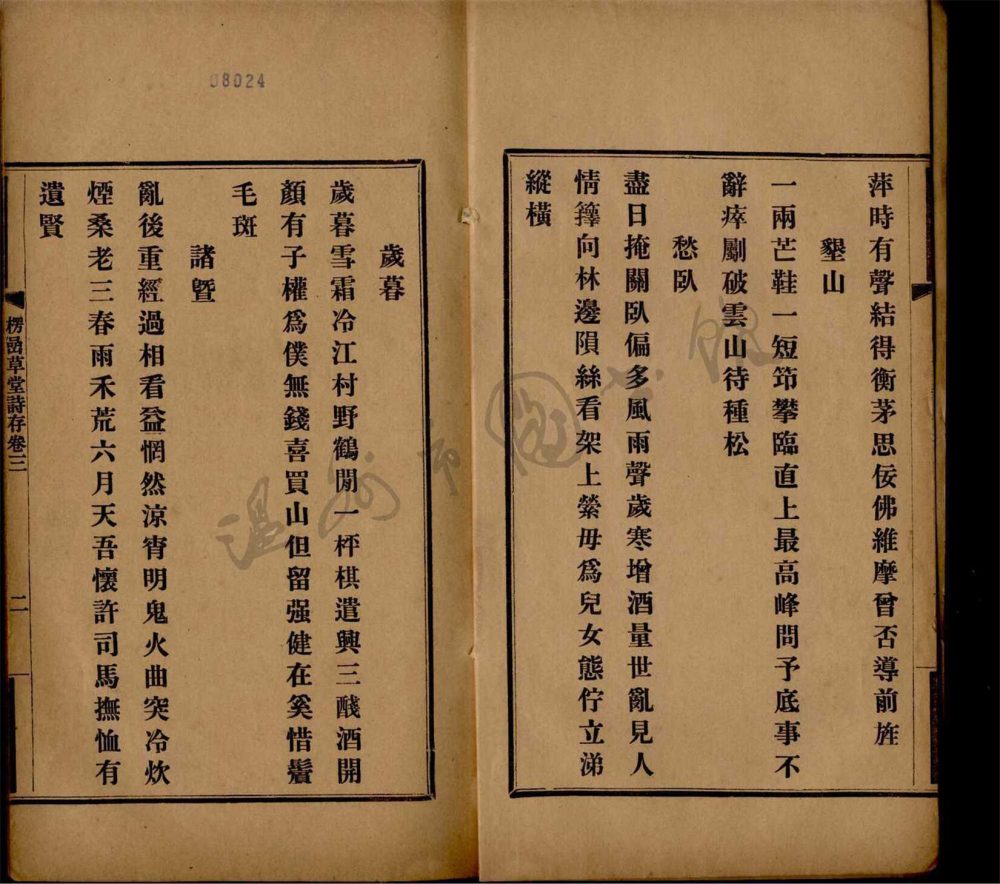 萍時有聲結得衡茅思佞佛維摩曾否導前旌
墾山
一兩芒鞋一短筇攀臨直上最高峰問予底事不
辭瘁劚破雲山待種松
愁臥
盡日掩關臥偏多風雨聲歲寒增酒量世亂見人
情籜向林邊隕絲看架上縈毋爲兒女態佇立涕
縱橫
歲暮
歲暮雪霜冷江村野鶴閒一枰棋遣興三醆酒開
顏有子權爲僕無錢喜買山但留强健在奚惜鬢
毛斑
諸曁
亂後重經過相看益惘然涼宵明鬼火曲突冷炊
煙桑老三春雨禾荒六月天吾懷許司馬撫恤有
遺賢
楞嵒草堂詩存卷三
二
08024
溫州市圖書館